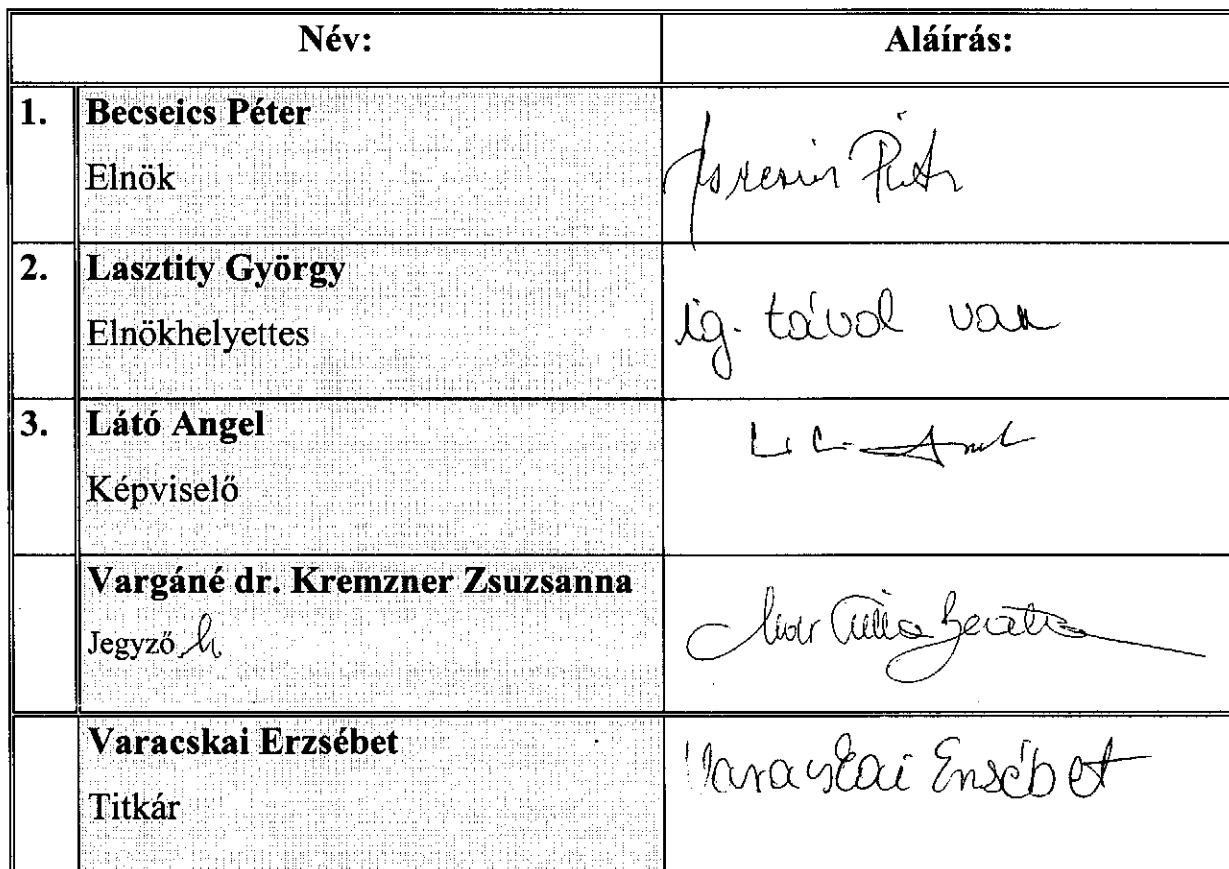 Név: Aláírás:
1. Becseics Péter
Elnök
2. Lasztity György
Elnökhelyettes
ig. távol van
3. Látó Angel
Képviselő
Vargáné dr. Kremzner Zsuzsanna
Jegyző h
Varacskai Erzsébet
Titkár
Varacskai Erzsébet